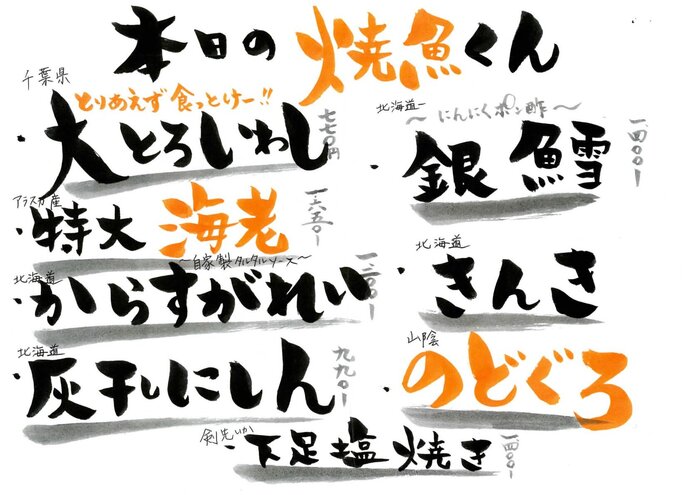 本日の焼魚くん
千葉県
とりあえず食っとけー!!
・大とろいわし 七七〇円
アラスカ産
・特大海老 一六五〇-
〜自家製タルタルソース〜
北海道
・からすがれい 一三〇〇-
北海道
・灰干しにしん 九九〇-
北海道
〜にんにくポン酢〜
・銀鱈 一四〇〇-
北海道
・きんき
山陰
・のどぐろ
剣先いか
・下足塩焼き 一四〇〇-